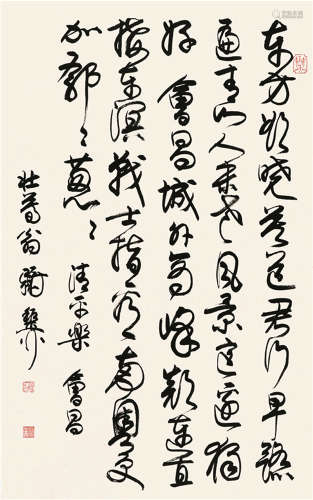 东方欲晓莫道君行早踏
遍青山人未老风景这边独
好會昌城外高峰颠连直
接东溟战士指看南粤更
加郁々葱々 清平樂 會昌
壮暮翁稚柳